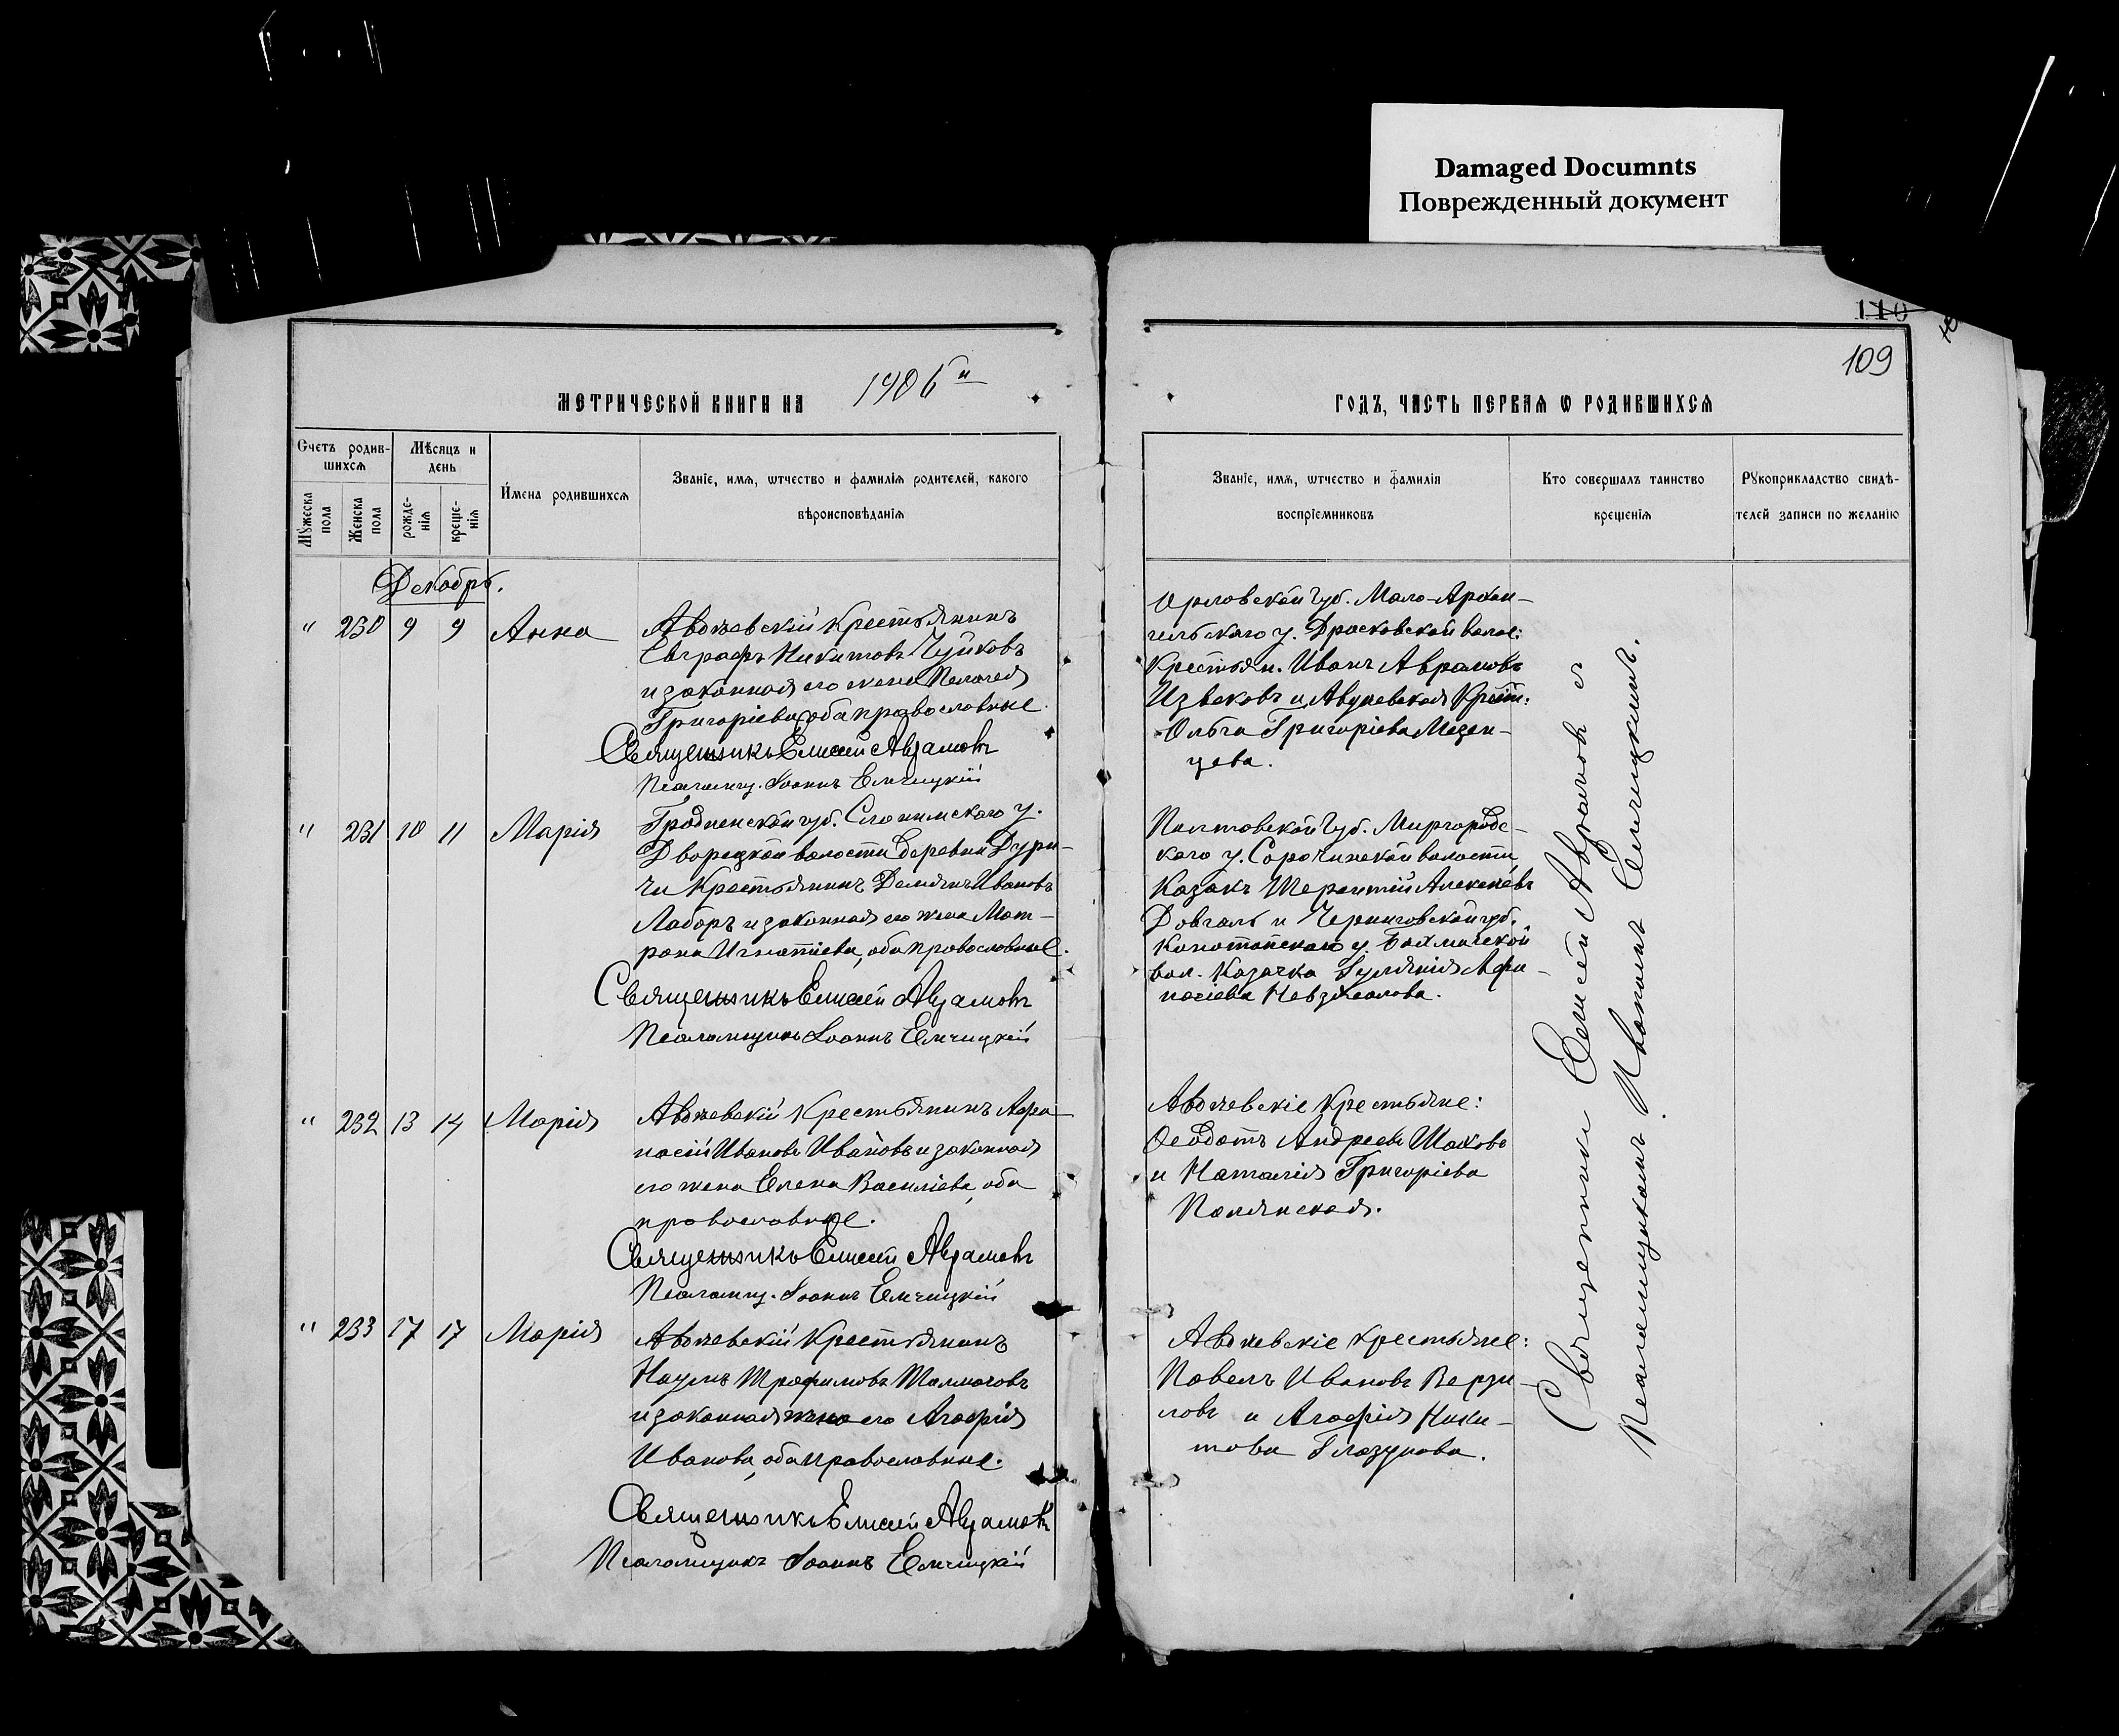 Damaged Documnts
Поврежденный документ
110
109
Метрической книги на 1906й
годъ, часть первая ѡ родившихся
Счетъ родив-
шихся
Мѣсяцъ и
день
Мꙋжеска
пола
Женска
пола
рожде-
нїя
креще-
нїя
Имена родившихся
Званїе, имя, ѡтчество и фамилїя родителей, какого
вѣроисповѣданїя
Званїе, имя, ѡтчество и фамилїя
воспрїемниковъ
Кто совершалъ таинство
крещенїя
Рꙋкоприкладство свидѣ-
телей записи по желанїю
Декабрь.
" 230 9 9 Анна
Евграфъ Никитовъ Чуйковъ
и законная его жена Пелагея
Григоріева, оба православные.
Священникъ Елисей Аврамовъ
Псаломщ. Іоаннъ Емчицкій
Орловской губ. Мало-Архан-
гельскаго у. Дросковской волос:
Крестьян. Иванъ Аврамовъ
Извековъ и Крест:
Ольга Григоріева Мезен-
цева.
" 231 10 11 Марія
Гродненской губ. Слонимскаго у.
Дворецкой волости деревни Дури-
чи Крестьянинъ Демянъ Ивановъ
Лаборъ и законная его жена Мат-
рона Игнатіева, оба православные.
Священникъ Елисей Аврамовъ
Псаломщикъ Іоаннъ Емчицкій
Полтавской губ. Миргородс-
каго у. Сорочинской волости
Казакъ Терентій Алексеевъ
Довгаль и Черниговской губ.
Конотопскаго у. Бахмачской
вол. Казачка Афа-
насіева
" 232 13 14 Марія
Крестьянинъ Афа-
насій Ивановъ Ивановъ и законная
его жена Елена Василіева, оба
православные.
Священникъ Елисей Аврамовъ
Псаломщ. Іоаннъ Емчицкій
Крестьяне:
Ѳеодотъ Андреевъ Шаховъ
и Наталія Григоріева
Полянская.
" 233 17 17 Марія
Крестьянинъ
Наумъ Трофимовъ Толмачовъ
и законная жена его Агафія
Иванова, оба православные.
Священникъ Елисей Аврамовъ
Псаломщикъ Іоаннъ Емчицкій
Крестьяне:
Павелъ Ивановъ Верзи-
ловъ и Агафія Ники-
това Глазунова.
Священникъ Елисей Аврамовъ съ
Псаломщикомъ Иваномъ Емчицкимъ.